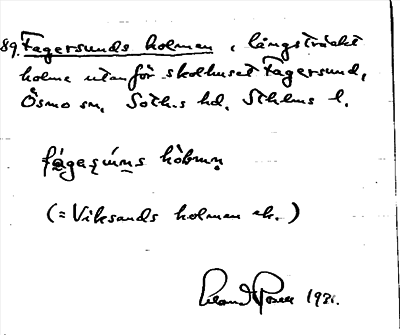 89. Fagersunds holmen, långsträckt
holme utanför skolhuset Fagersund,
Ösmo sn. Soth.s hd. Sthlms l.
fágasúns hòlmn̥
(= Viksands holmen ek.)
1931.